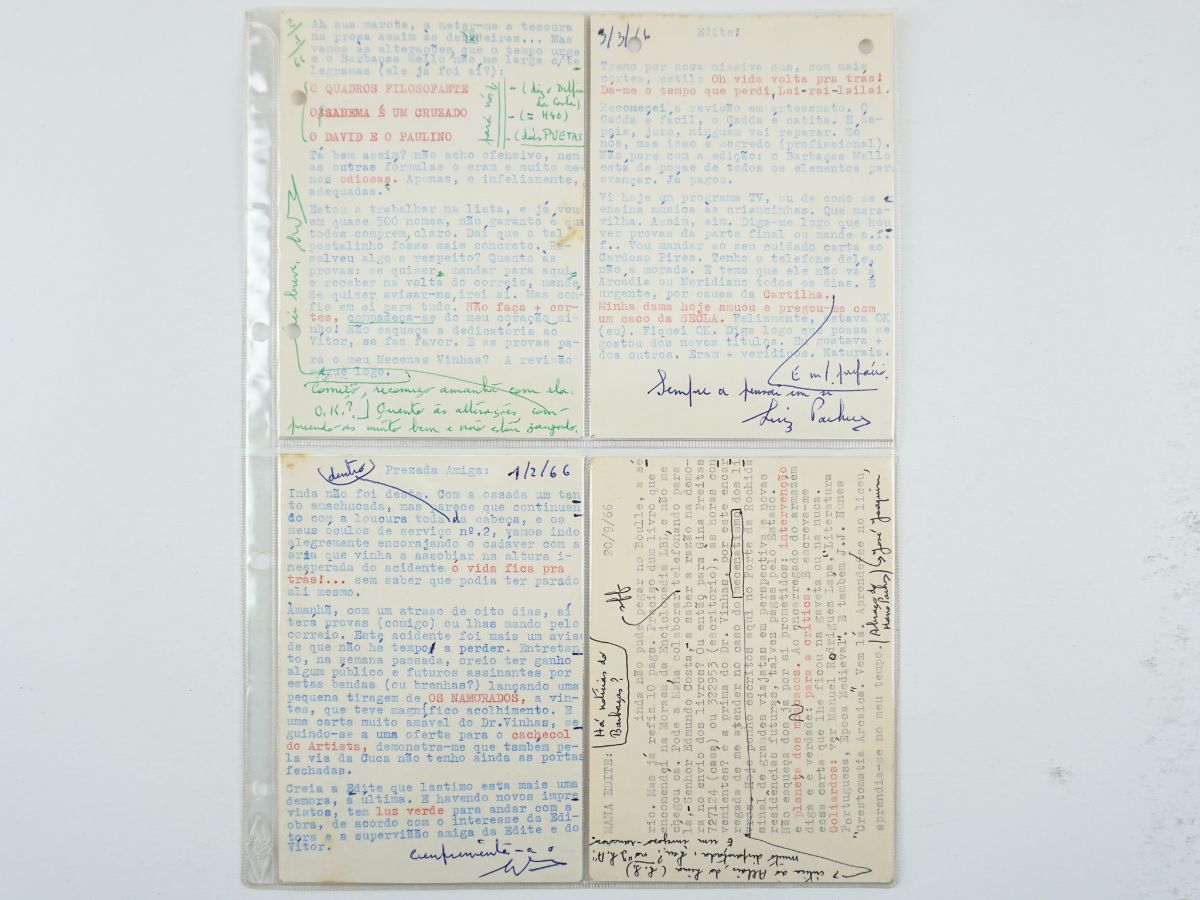 Ah sua marota, a meter-me a tesoura
na prosa assim às deladeiras... Mas
vamos às alterações, que o tempo urge
e o Barbaças Mello não me larga c/te
legramas (ele já foi aí?):
O QUADROS FILOSOFANTE
O SABEMA É UM CRUZADO
O DAVID E O PAULINO
para nós
- (= H40)
- (dois PUETAS
Tá bem assim? não acho ofensivo, nem
as outras fórmulas o eram e muito me-
nos odiosas. Apenas, e infelizmente,
adequadas.
Estou a trabalhar na lista, e já vou
em quase 500 nomes, não garanto é que
todos comprem, claro. Daí que o tal
postalinho fosse mais concreto. Re-
solveu algo a respeito? Quanto às
provas: se quiser, mandar para aqui
e receber na volta do correio, mande
Se quiser avisar-me, irei aí. Mas con-
fio em si para tudo. Não faça + cor-
tes, compadeça-se do meu coração zi-
nho! Não esqueça a dedicatória ao
Vítor, se faz favor. E as provas pa-
ra o meu Mecenas Vinhas? A revisão
segue logo.
Comigo, recomeço amanhã com ela.
O.K.?] Quanto às alterações, com-
preendo-as muito bem e não estou zangado.
3/3/66 Edite:
Tremo por nova missiva sua, com mais
cortes, estilo Oh vida volta pra trás!
Da-me o tempo que perdi, Lai-rai-lailai.
Recomecei a revisão em artesanato. O
Gadda é fácil, o Gadda é catita. E de-
pois, juro, ninguem vai reparar. Só
nós, mas isso é segredo (profissional).
Não pare com a edição: o Barbaças Mello
está de posse de todos os elementos para
avançar. Já pagou.
Vi hoje um programa TV, ou de como se
ensina musica às criancinhas. Que mara-
vilha. Assim, sim. Diga-me logo que hou
ver provas da parte final ou mande s.f
f.. Vou mandar ao seu cuidado carta ao
Cardoso Pires. Tenho o telefone dele,
não a morada. E temo que ele não vá à
Arcádia ou Meridiano todos os dias. É
urgente, por causa da Cartilha.
Minha dama hoje amuou e pregou-me com
um caco da SECLA. Felizmente, estava OK
(eu). Fiquei OK. Diga logo que possa se
gostou dos novos títulos. Eu gostava +
dos outros. Eram + verídicos. Naturais.
E m/ prefácio.
Sempre a pensar em si
Luiz Pacheco
(dentro) Prezada Amiga: 1/2/66
Inda não foi desta. Com a ossada um tan
to amachucada, mas parece que continuan
do com a loucura toda da cabeça, e os
meus óculos de serviço nº.2, vamos indo
alegremente encorajando o cadaver com a
ária que vinha a assobiar na altura i-
nesperada do acidente ó vida fica pra
trás!... sem saber que podia ter parado
ali mesmo.
Amanhã, com um atraso de oito dias, aí
terá provas (comigo) ou lhas mando pelo
correio. Este acidente foi mais um avis
de que não há tempo a perder. Entretan
to, na semana passada, creio ter ganho
algum público e futuros assinantes por
estas bandas (ou brenhas?) lançando uma
pequena tiragem de OS NAMORADOS, a vin-
tes, que teve magnífico acolhimento. E
uma carta muito amavel do Dr.Vinhas, se
guindo-se a uma oferta para o cachecol
do Artista, demonstra-me que tambem pe-
la via da Cuca não tenho ainda as portas
fechadas.
Creia a Edite que lastimo esta mais uma
demora, a última. E havendo novos impre
vistos, tem luz verde para andar com a
obra, de acordo com o interesse da Edi-
tora e a supervisão amiga da Edite e do
Vítor.
cumprimenta-a o
MANA EDITE: 20/9/66
Há notícias do
Barbaças?
inda não pude pegar no Boulle, a sé
rio. Mas já refiz 10 pags. Preciso dum livro, que
encomendei na Moraes, da Enciclopedia LEL, e não me
chegou cá. Pode a Maia colaborar, telefonando para
lá, Senhor Edmundo Costa, a saber a razão na demo-
ra no envio dos livros? Ou então para Gina Freitas
727124 (casa) ou 322953 (escritorio), às horas con
venientes? é a prima do Dr. Vinhas, por este encar
regada de me atender no caso do mecenatismo dos li
vros. Hoje ponho escritos aqui no Forte da Rochida
sinal de grandes viajatas em perspectiva e novas
residências futuras, talvez pagas pelo Estado.
Não esqueça dos livros por si prometidos: Intervenção
e planeta dos macacos. Ao encarregado do armazem
diga que é para a crítica. E escreva-me
essa carta que lhe ficou na gaveta ou na nuca.
Goliardos: ver Manuel Rodrigues Lapa, "Literatura
Portuguesa, Época Medieval". E tambem J.J. Nunes
"Crestomatia Arcaica". Vem lá. Aprende-se no liceu,
aprendia-se no meu tempo.
(Abraço do
Mano Pacheco)
S. José Joaquim